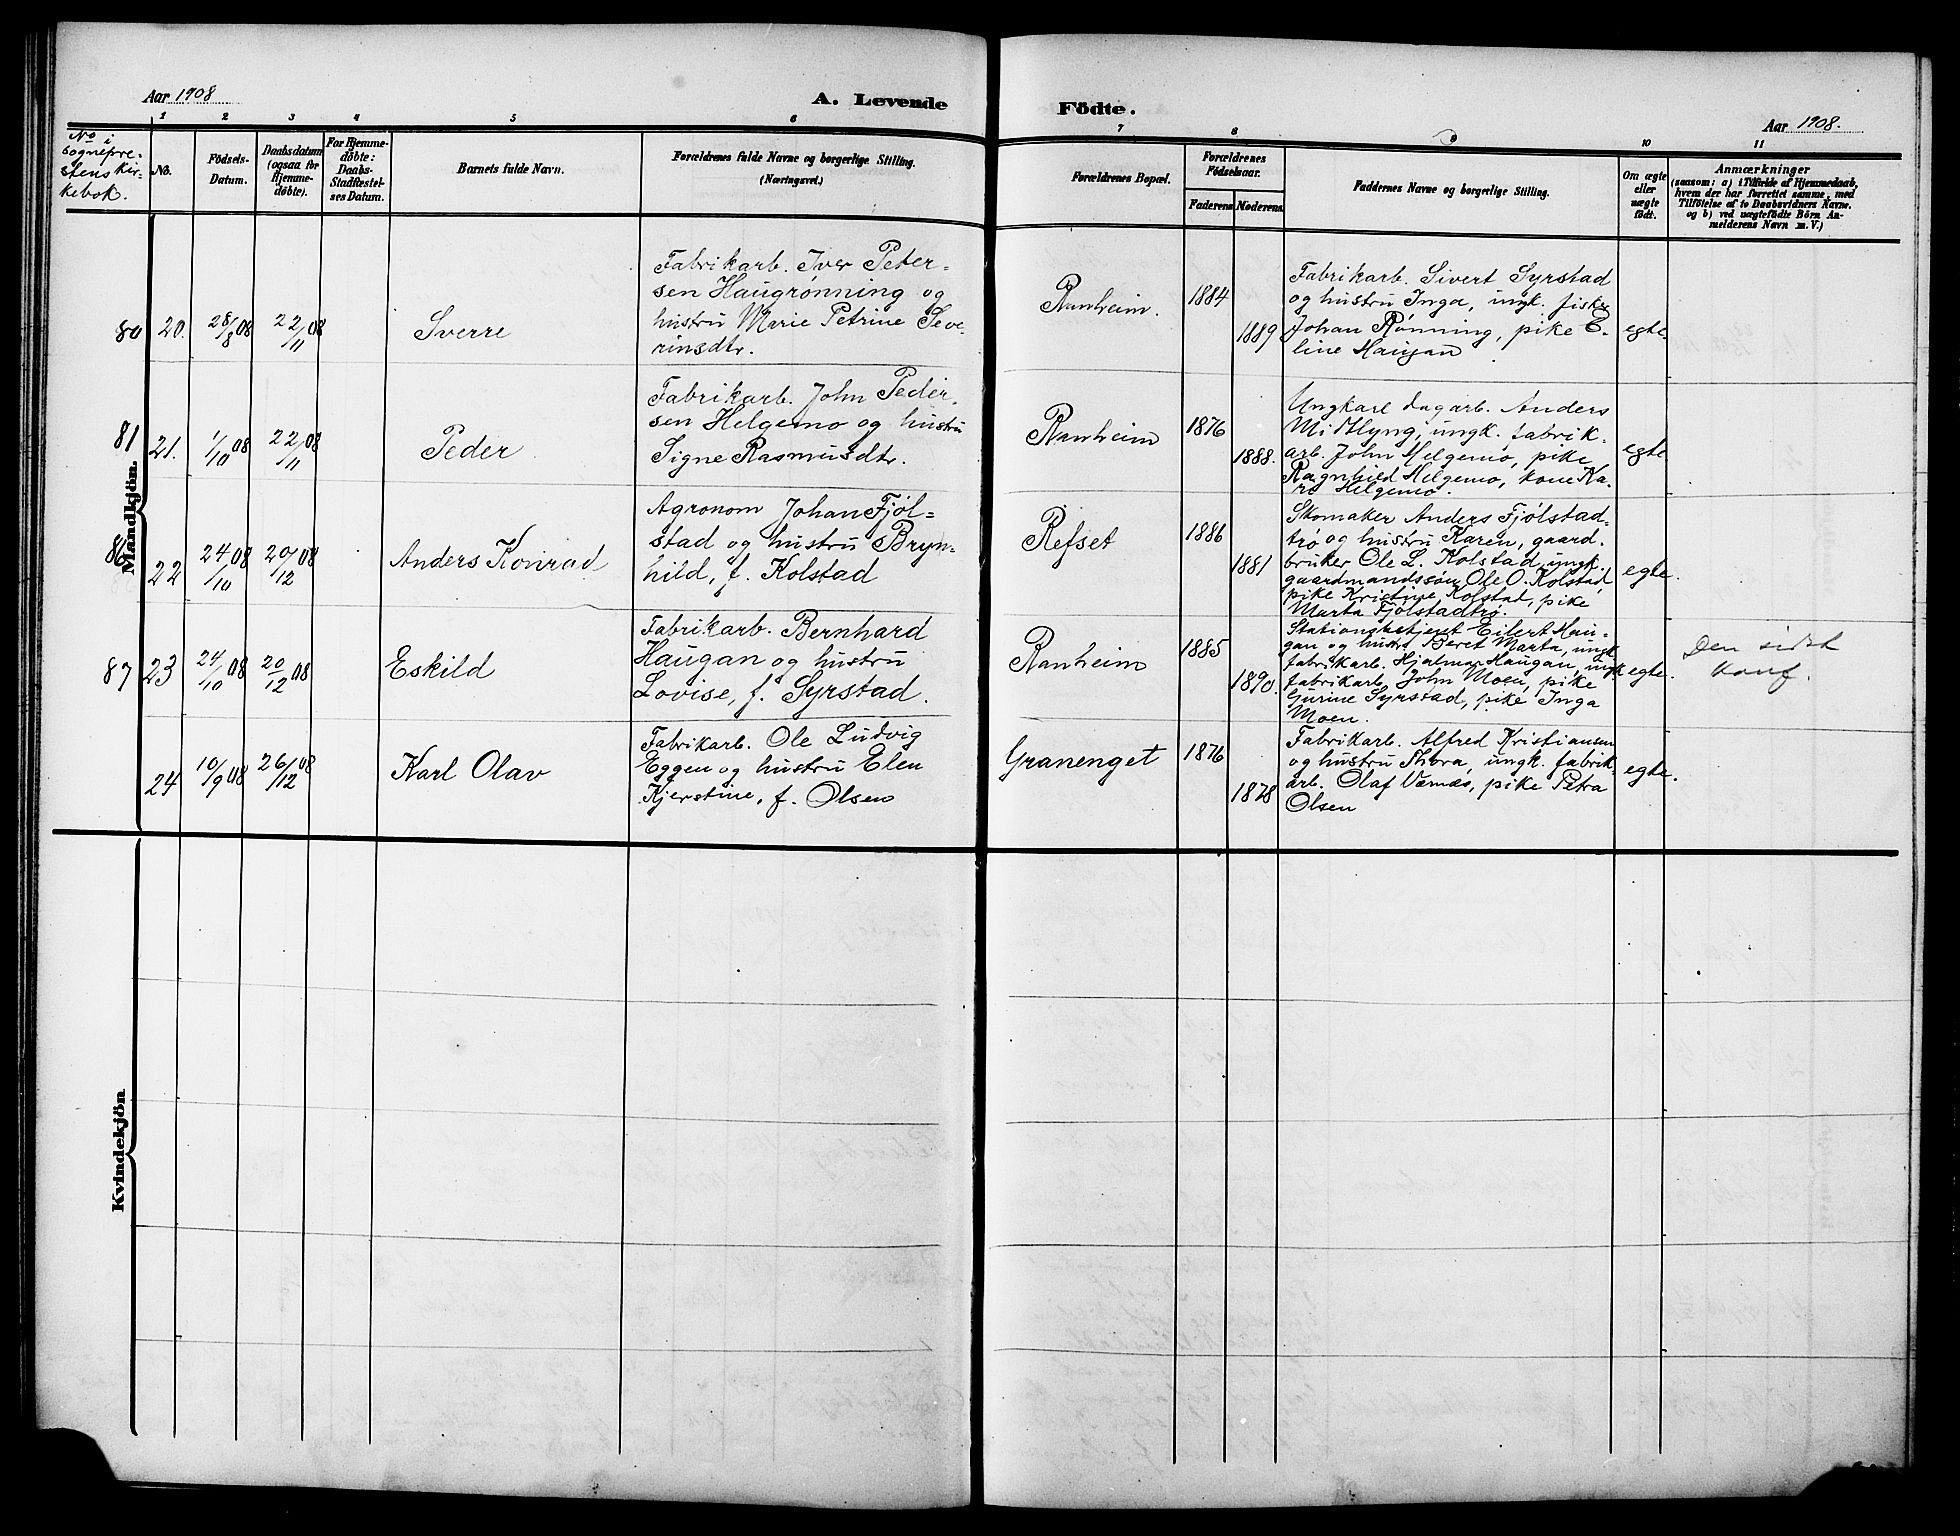 Aar 1908
A. Levende
Födte.
Aar 1908.
1 2 3 4 5 6 7 8 9 10 11
No i
Sognepre-
stens kir-
kebok.
No.
Födsels-
Datum.
Daabsdatum
(ogsaa for
Hjemme-
döbte).
For Hjemme-
döbte:
Daabs-
Stadfæstel-
ses Datum.
Barnets fulde Navn.
Forældrenes fulde Navne og borgerlige Stilling.
(Næringsvei.)
Forældrenes Bopæl.
Forældrenes
Födselsaar.
Faderens Moderens
Faddernes Navne og borgerlige Stilling.
Om ægte
eller
uægte
födt.
Anmærkninger
(saasom: a) i Tilfælde af Hjemmedaab,
hvem der har forrettet samme, med
Tilföielse af to Daabsvidners Navne.
og b) ved uægtefödte Börn An-
melderens Navn m. V.)
Mandkjön.
80 20. 28/8 08 22/11 08
Sverre
Fabrikarb. Iver Peter-
sen Haugrønning og
hustru Marie Petrine Seve-
rinsdtr.
Ranheim.
1884
1889
Fabrikarb. Sivert Syrstad
og hustru Inga, ungk. fisker
Johan Rønning, pike E-
line Haugan
egte.
81 21. 1/10 08 22/11 08
Peder
Fabrikarb. John Peder-
sen Helgemo og hustru
Signe Rasmusdtr.
Ranheim
1876
1888.
Ungkarl dagarb. Anders
Midtlyng, ungk. fabrik-
arb. John Helgemo, pike
Ragnhild Helgemo, kone Ka-
ri Helgemo.
egte
86 22 24/10 08 20/12 08
Anders Konrad
Agronom Johan Fjøl-
stad og hustru Bryn-
hild, f. Kolstad
Refset
1886
1881
Skomaker Anders Fjølstad-
trø og hustru Karen, gaard-
bruker Ole L. Kolstad, ungk.
gaardmandssøn Ole O. Kolstad,
pike Kristine Kolstad, pike
Marta Fjølstadtrø.
egte.
87 23 24/10 08 20/12 08
Eskild
Fabrikarb. Bernhard
Haugan og hustru
Lovise, f. Syrstad.
Ranheim
1885
1890.
Stationsbetjent Eilert Hau-
gan og hustru Beret Marta, ungk.
fabrikarb. Hjalmar Haugan, ungk.
fabrikarb. John Moen, pike
Gurine Syrstad, pike Inga
Moen.
egte.
Den sidst
konf.
24 10/9 08 26/12 08
Karl Olav
Fabrikarb. Ole Ludvig
Eggen og hustru Elen
Kjerstine, f. Olsen
Granenget
1876
1878
Fabrikarb. Alfred Kristiansen
og hustru Thora, ungk. fabrik-
arb. Olaf Værnæs, pike Petra
Olsen
egte.
Kvindekjön